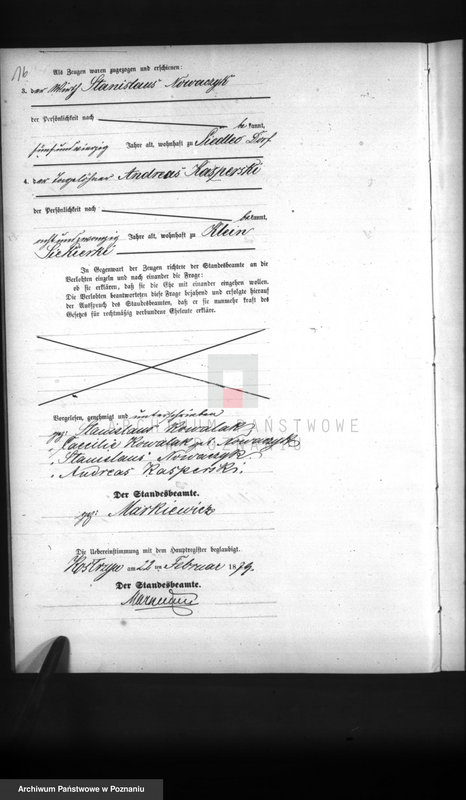 16
Als Zeugen waren zugezogen und erschienen:
3. der Wirth Stanislaus Nowaczyk
der Persönlichkeit nach
be kannt,
fünfundvierzig Jahre alt, wohnhaft zu Siedlec Dorf
4. der Tagelöhner Andreas Kasperski
der Persönlichkeit nach
be kannt,
Jahre alt, wohnhaft zu Klein
Siekierki
In Gegenwart der Zeugen richtete der Standesbeamte an die
Verlobten einzeln und nach einander die Frage:
ob sie erklären, daß sie die Ehe mit einander eingehen wollen.
Die Verlobten beantworteten diese Frage bejahend und erfolgte hierauf
der Ausspruch des Standesbeamten, daß er sie nunmehr kraft des
Gesetzes für rechtmäßig verbundene Eheleute erkläre.
Vorgelesen, genehmigt und unterschrieben
gez: Stanislaus Kowalak
Caecilie Kowalak geb. Nowaczyk
Stanislaus Nowaczyk
Andreas Kasperski
Der Standesbeamte.
gez: Markiewicz
Die Uebereinstimmung mit dem Hauptregister beglaubigt.
Kostrzyn am 22 ten Februar 1879.
Der Standesbeamte.
ARCHIWUM PAŃSTWOWE
Archiwum Państwowe w Poznaniu